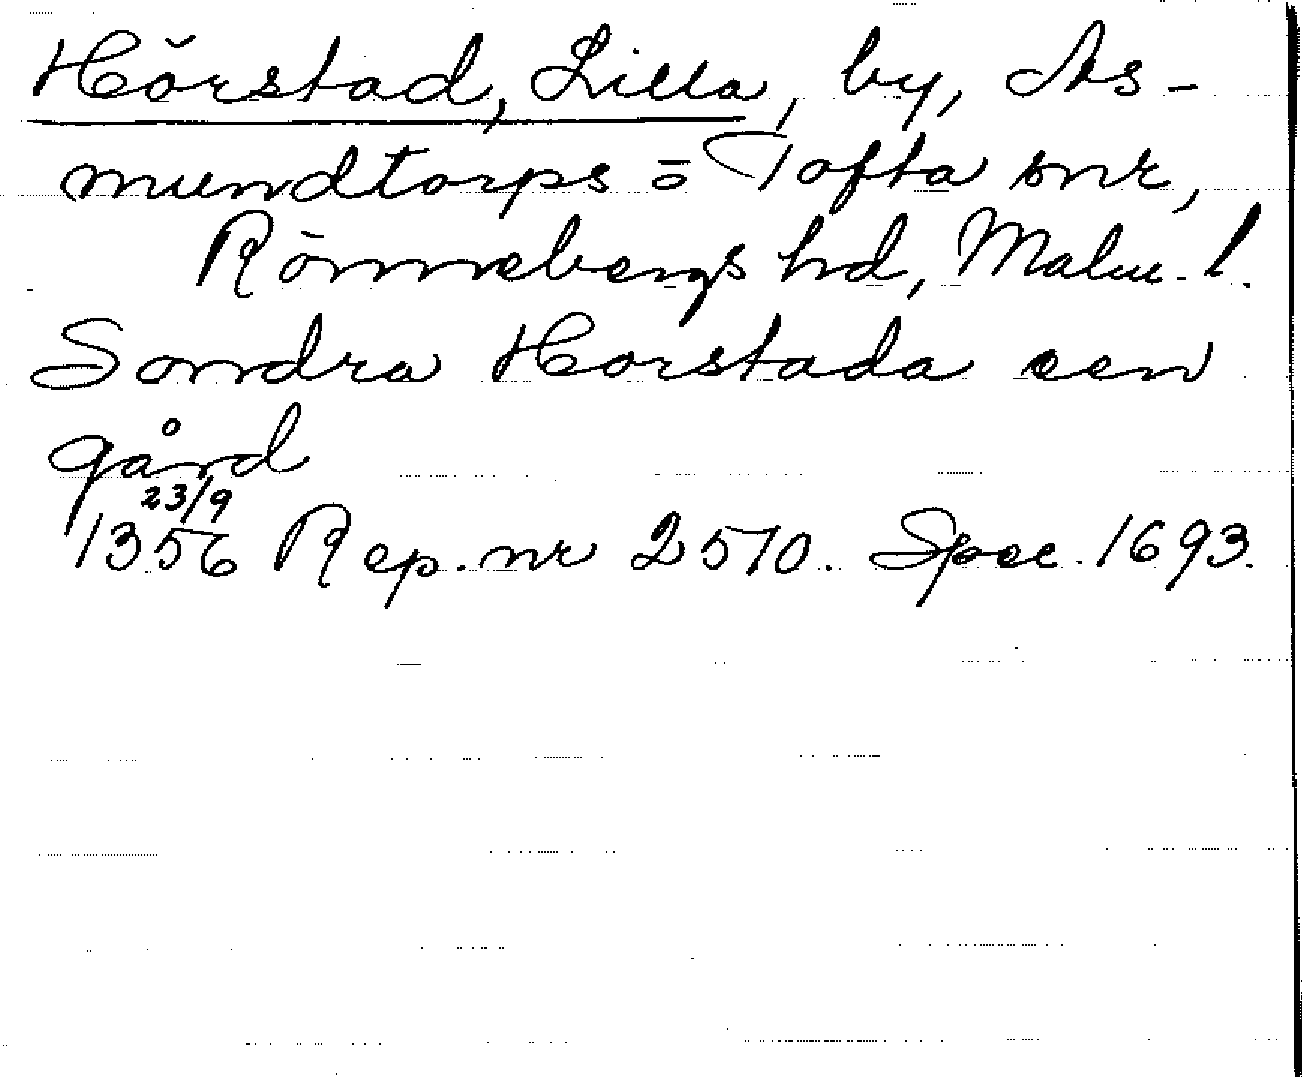 Hörstad, Lilla, by, As-
mundtorps = Tofta snr,
Rönnebergs hd, Malm. l.
Sondra Horstada een
gård
23/9
1356 Rep. nr 2570. Spec. 1693.